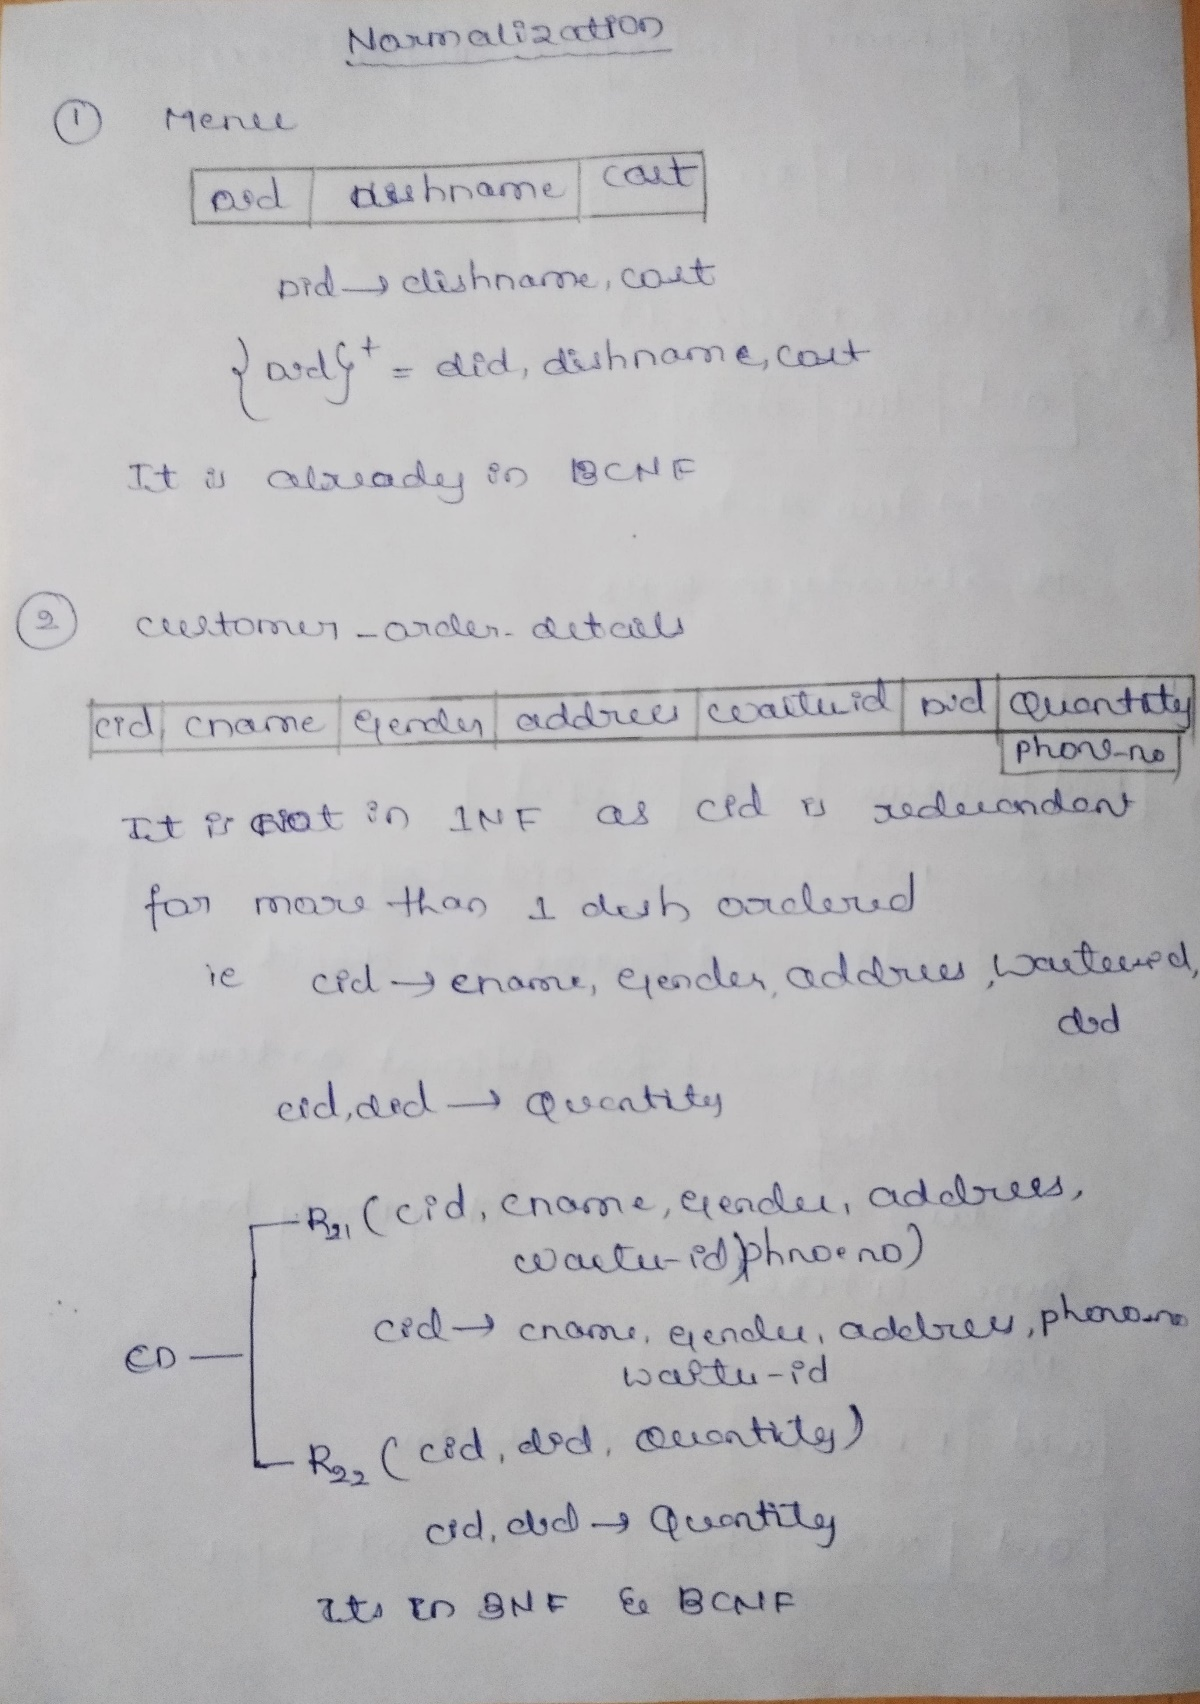 Normalization
1 Menu
did dishname cost
Did → dishname, cost
{did}+ = did, dishname, cost
It is already in BCNF
2 customer-order-details
cid cname Gender address waiterid Did Quantity
phone-no
It is not in 1NF as cid is redundant
for more than 1 dish ordered
ie cid → cname, gender, address, waiterid,
did
cid, did → Quantity
R21 (cid, cname, gender, address,
waiter-id, phnoeno)
cid → cname, gender, address, phone-no
waiter-id
CD
R22 (cid, did, Quantity)
cid, did → Quantity
Its in 3NF & BCNF